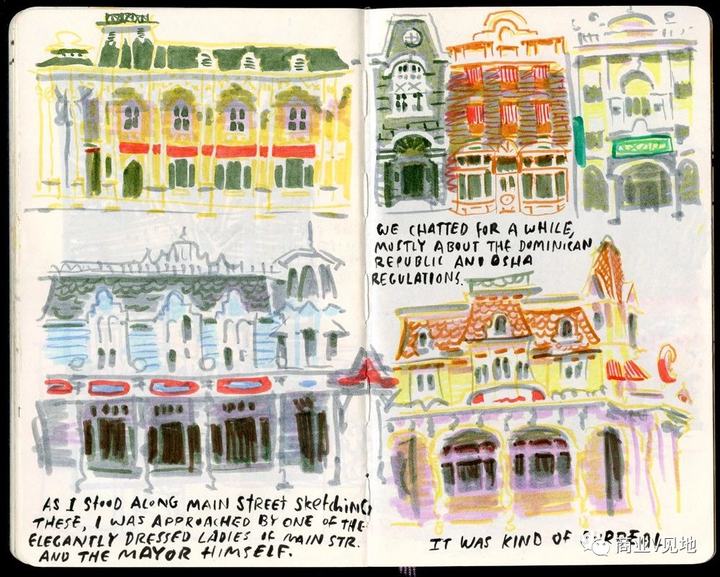 AS I STOOD ALONG MAIN STREET SKETCHING
THESE, I WAS APPROACHED BY ONE OF THE
ELEGANTLY DRESSED LADIES OF MAIN STR.
AND THE MAYOR HIMSELF.
WE CHATTED FOR A WHILE,
MOSTLY ABOUT THE DOMINICAN
REPUBLIC AND OSHA
REGULATIONS.
IT WAS KIND OF SURREAL
商业v见地